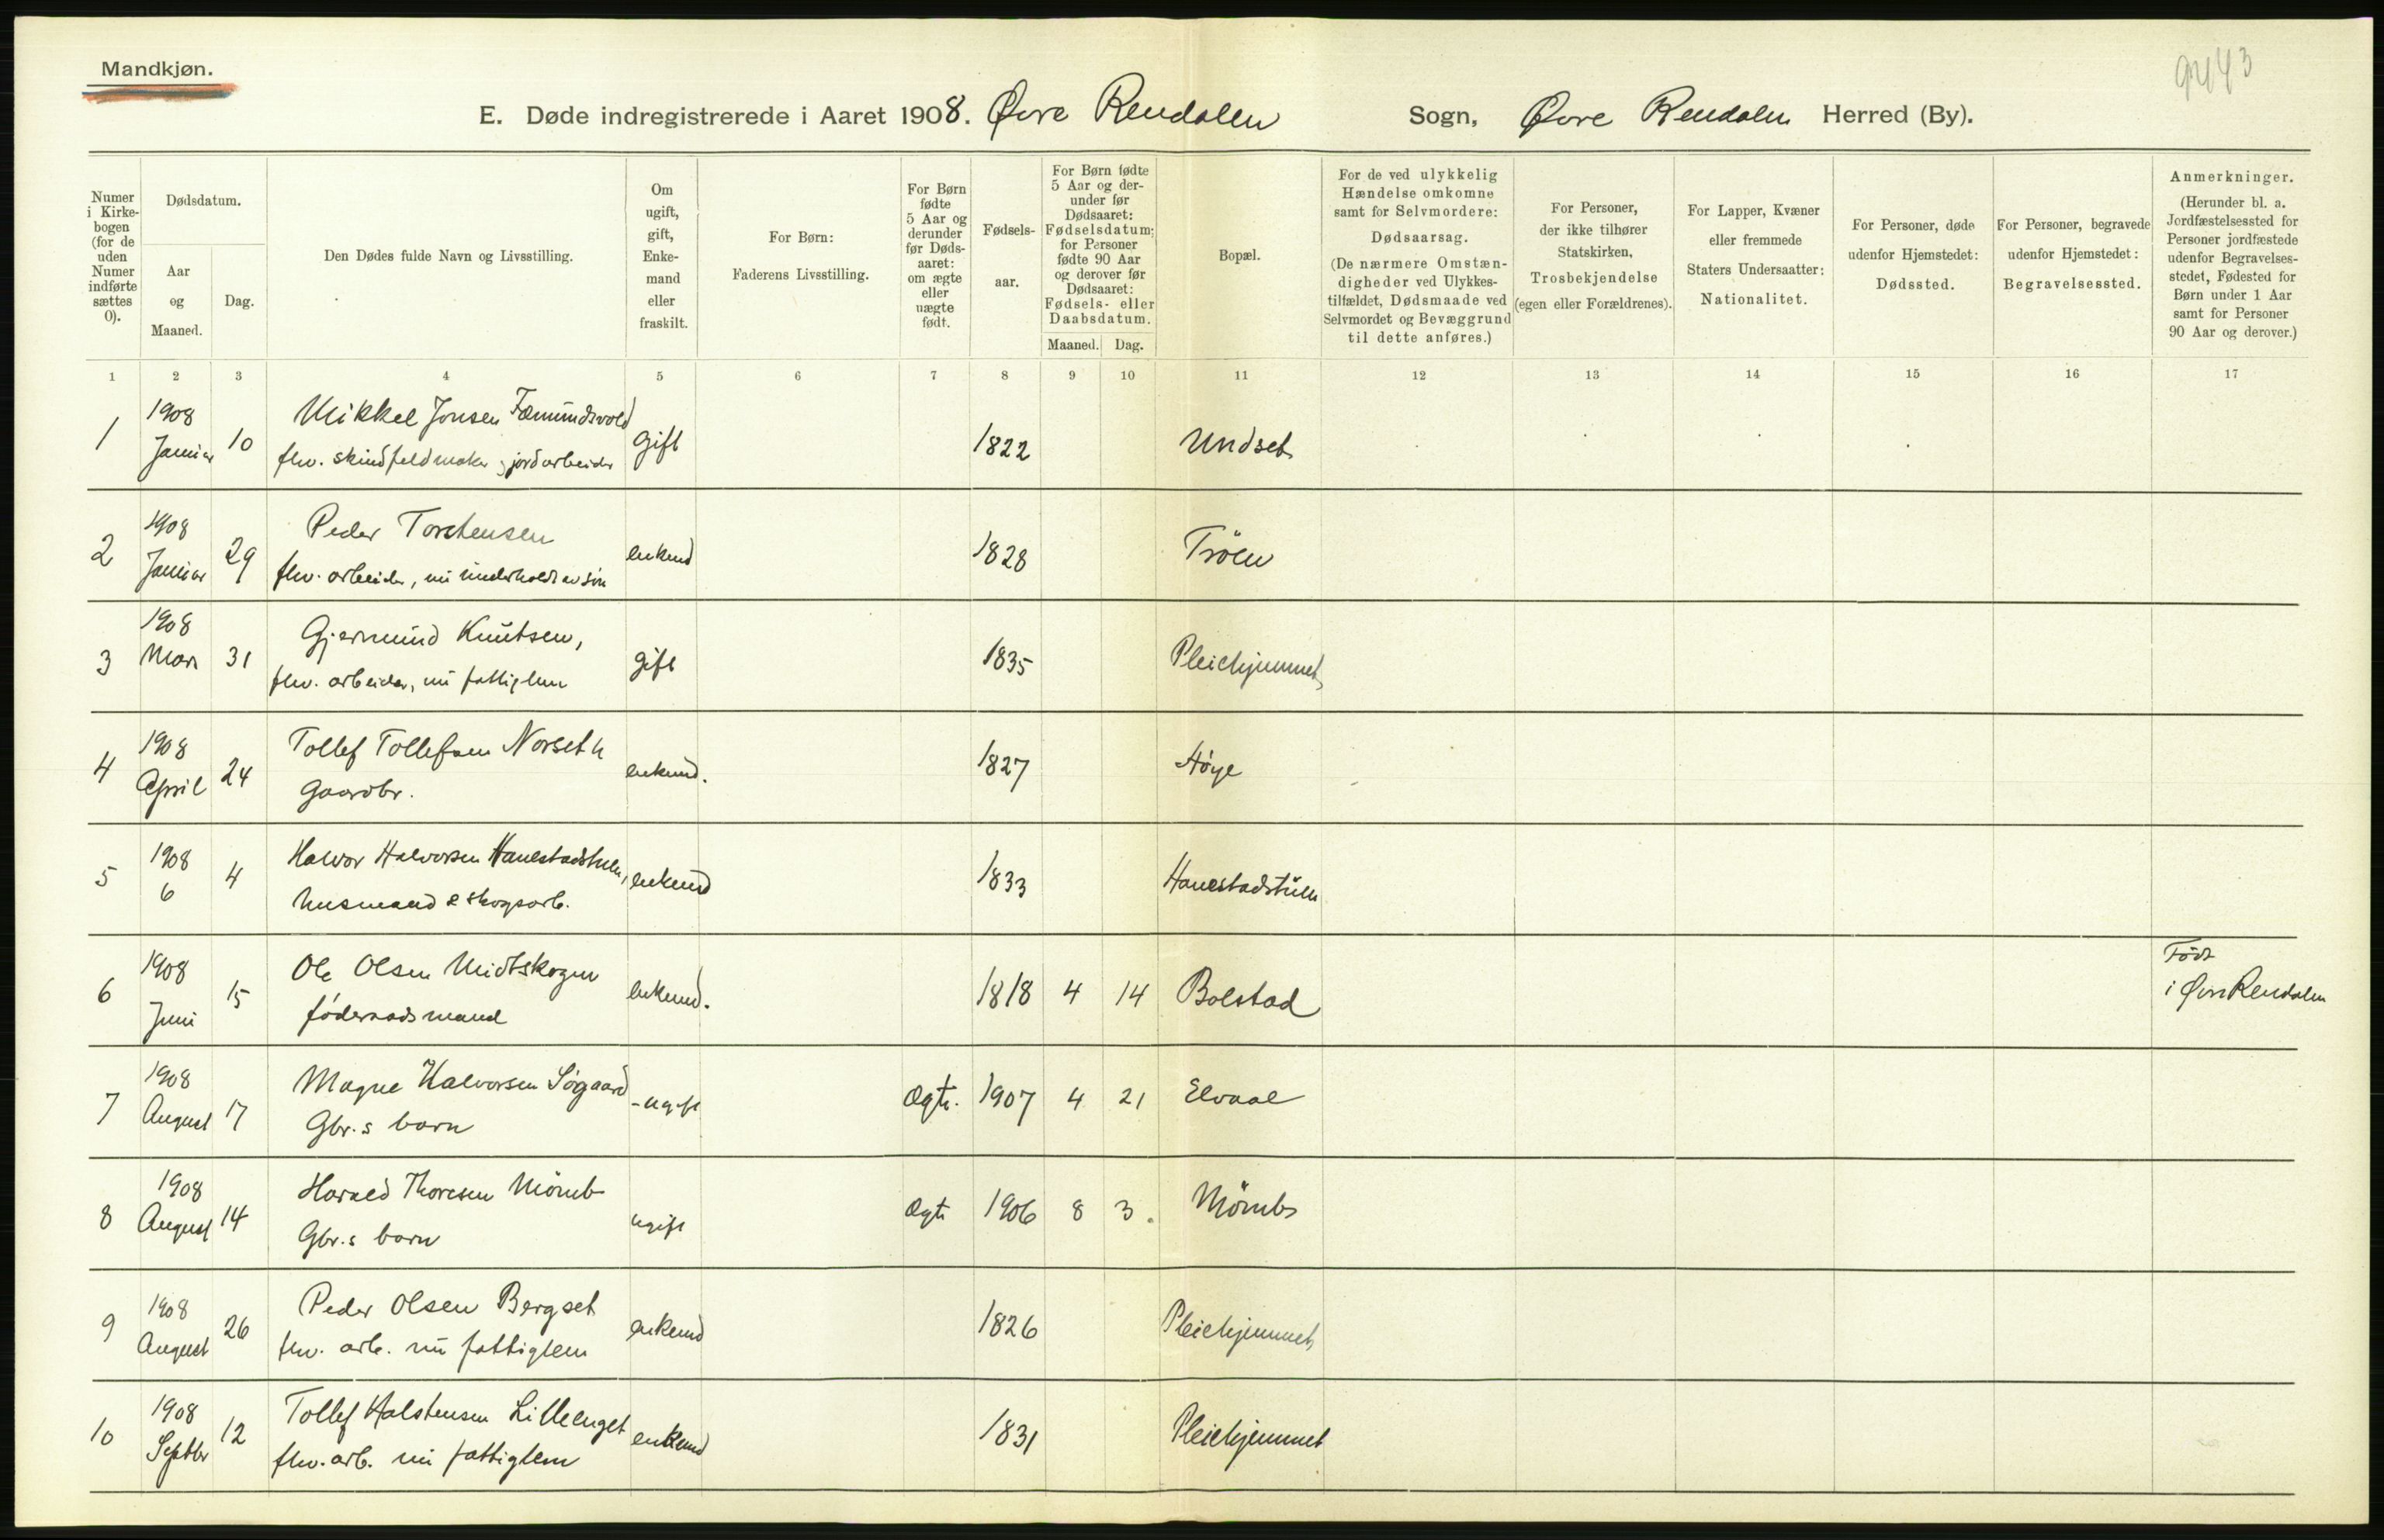 Mandkjøn.
9243
E. Døde indregistrerede i Aaret 1908. Øvre Rendalen Sogn, Øvre Rendalen Herred (By).
Numer i Kirkebogen (for de uden Numer indførte sættes 0).
Dødsdatum.
Aar og Maaned.
Dag.
Den Dødes fulde Navn og Livsstilling.
Om ugift, gift, Enkemand eller fraskilt.
For Børn: Faderens Livsstilling.
For Børn fødte 5 Aar og derunder før Dødsaaret: om ægte eller uægte født.
Fødselsaar.
For Børn fødte 5 Aar og derunder før Dødsaaret: Fødselsdatum; for Personer fødte 90 Aar og derover før Dødsaaret: Fødsels- eller Daabsdatum.
Maaned. Dag.
Bopæl.
For de ved ulykkelig Hændelse omkomne samt for Selvmordere: Dødsaarsag. (De nærmere Omstændigheder ved Ulykkestilfældet, Dødsmaade ved Selvmordet og Bevæggrund til dette anføres.)
For Personer, der ikke tilhører Statskirken, Trosbekjendelse (egen eller Forældrenes).
For Lapper, Kvæner eller fremmede Staters Undersaatter: Nationalitet.
For Personer, døde udenfor Hjemstedet: Dødssted.
For Personer, begravede udenfor Hjemstedet: Begravelsessted.
Anmerkninger. (Herunder bl. a. Jordfæstelsessted for Personer jordfæstede udenfor Begravelsesstedet, Fødested for Børn under 1 Aar samt for Personer 90 Aar og derover.)
1 2 3 4 5 6 7 8 9 10 11 12 13 14 15 16 17
1 1908 Januar 10 Mikkel Jonsen Fæmundsvold gift 1822 Undset
fhv. skindfeldmaker og jordarbeider
2 1908 Januar 29 Peder Torstensen enkemd 1828 Trøen
fhv. arbeider, nu underholdt av søn
3 1908 Mars 31 Gjermund Knutsen, gift 1835 Pleiehjemmet
fhv. arbeider, nu fattiglem
4 1908 April 24 Tollef Tollefsen Norseth enkemd. 1827 Høye
Gaardbr.
5 1908 6 4 Halvor Halvorsen Hanestadtuen, enkemd 1833 Hanestadtuen
husmand & skogsarb.
6 1908 Juni 15 Ole Olsen Midtskogen enkemd. 1818 4 14 Bolstad Født i Øvre Rendalen
føderaadsmand
7 1908 August 17 Magne Halvorsen Søgaard - ugift Ægte. 1907 4 21 Elvaal
Gbr.s barn
8 1908 August 14 Harald Thoresen Mömb ugift Ægte 1906 8 3. Mömb
Gbr.s barn
9 1908 August 26 Peder Olsen Bergset enkemd 1826 Pleiehjemmet
fhv. arb. nu fattiglem
10 1908 Septbr 12 Tollef Halstensen Lilleenget enkemd 1831 Pleiehjemmet
fhv. arb. nu fattiglem